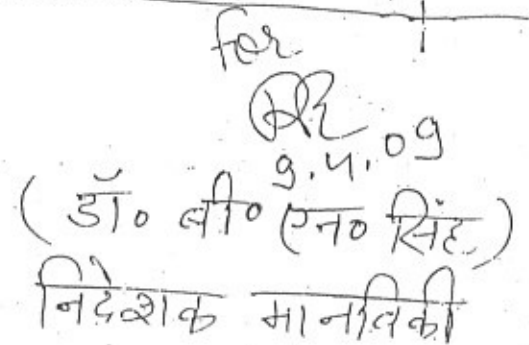 for
9.4.09
(डॉ० बी० एन० सिंह)
निदेशक मानविकी